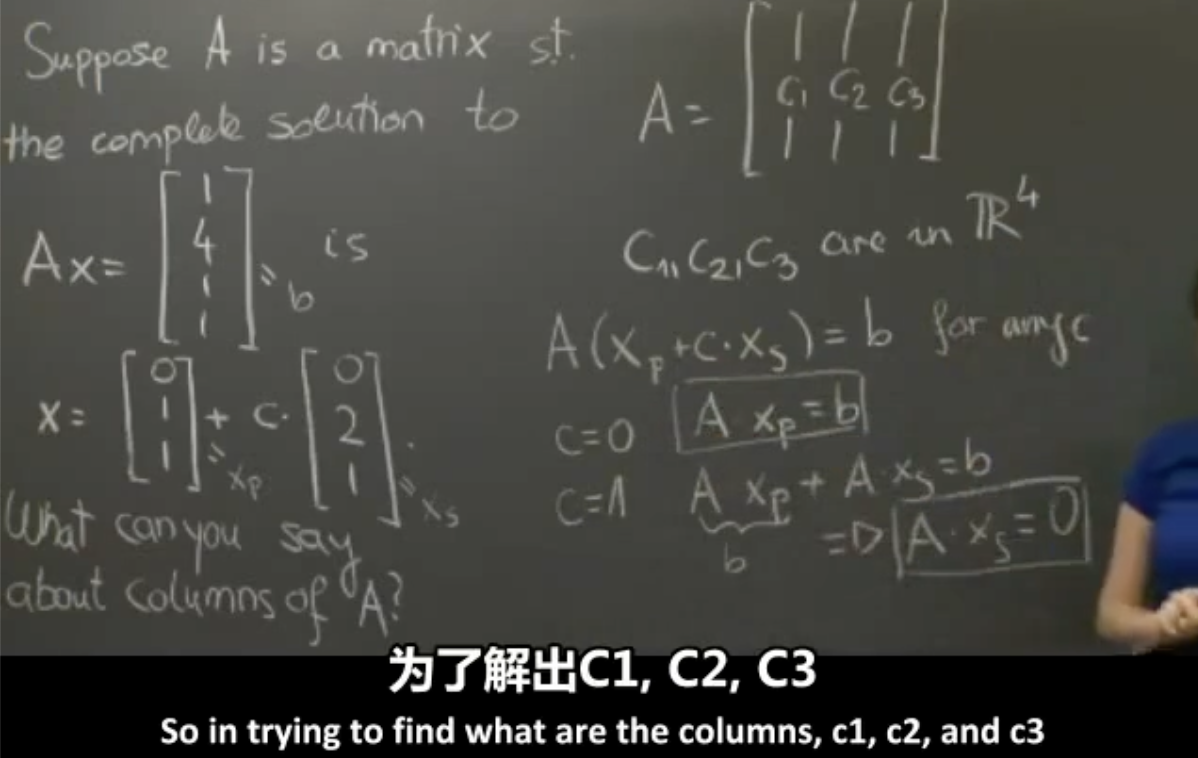 Suppose A is a matrix s.t.
the complete solution to
Ax= [1 4 1 1] = b is
x= [0 1 1] = xp + c· [0 2 1] = xs .
What can you say
about columns of A?
A= [c1 c2 c3]
C1, C2, C3 are in ℝ⁴
A(xp +c·xs)= b for any c
c=0 A xp = b
c=1 A xp + A·xs = b
b ⇒ A·xs = 0
为了解出C1, C2, C3
So in trying to find what are the columns, c1, c2, and c3